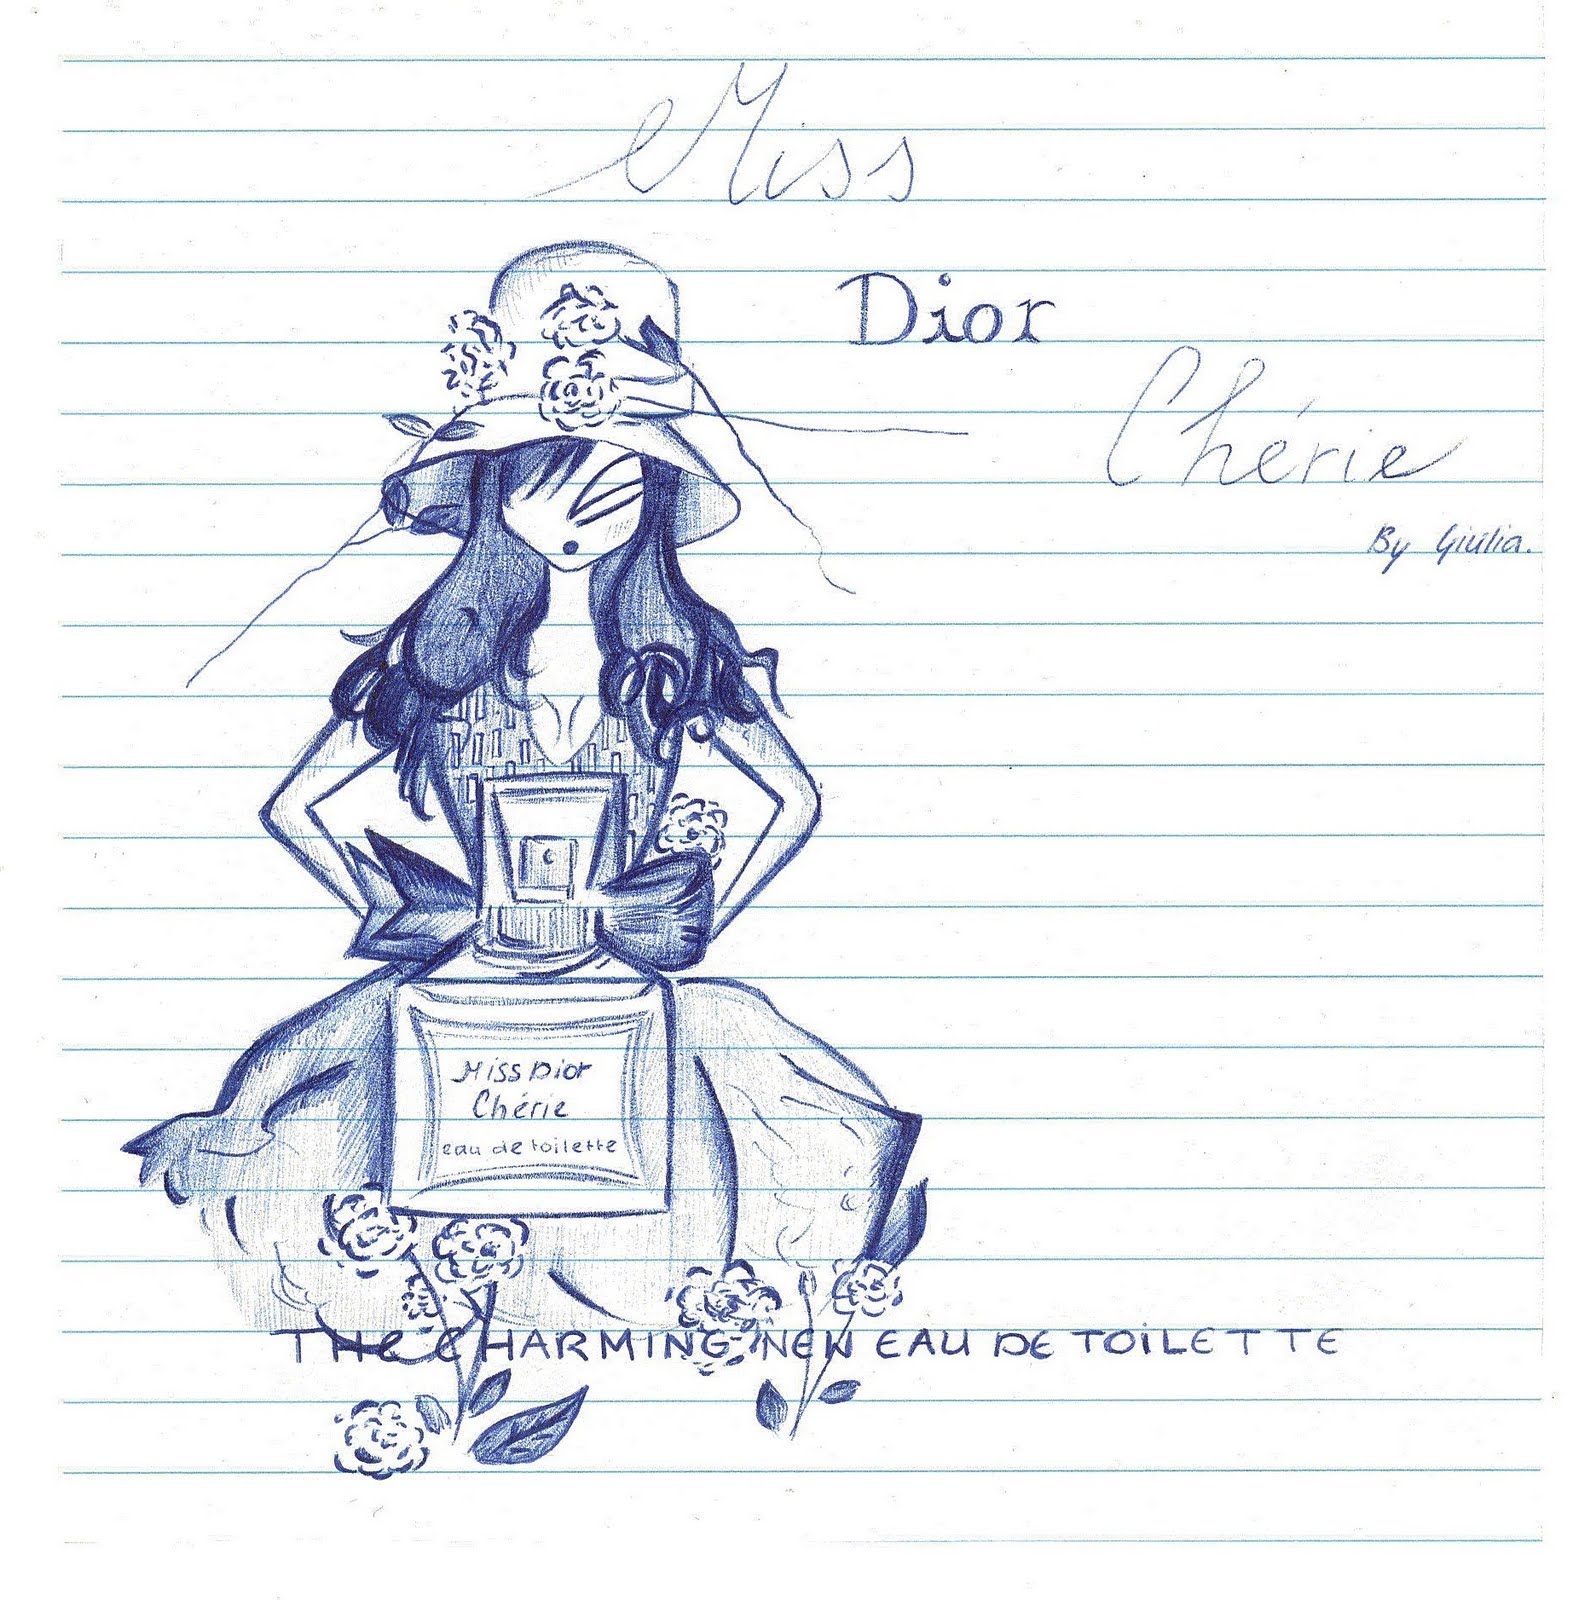 Miss
Dior
Chérie
By Giulia.
Miss Dior
Chérie
eau de toilette
THe CHARMING NEW EAU DE TOiLETTE